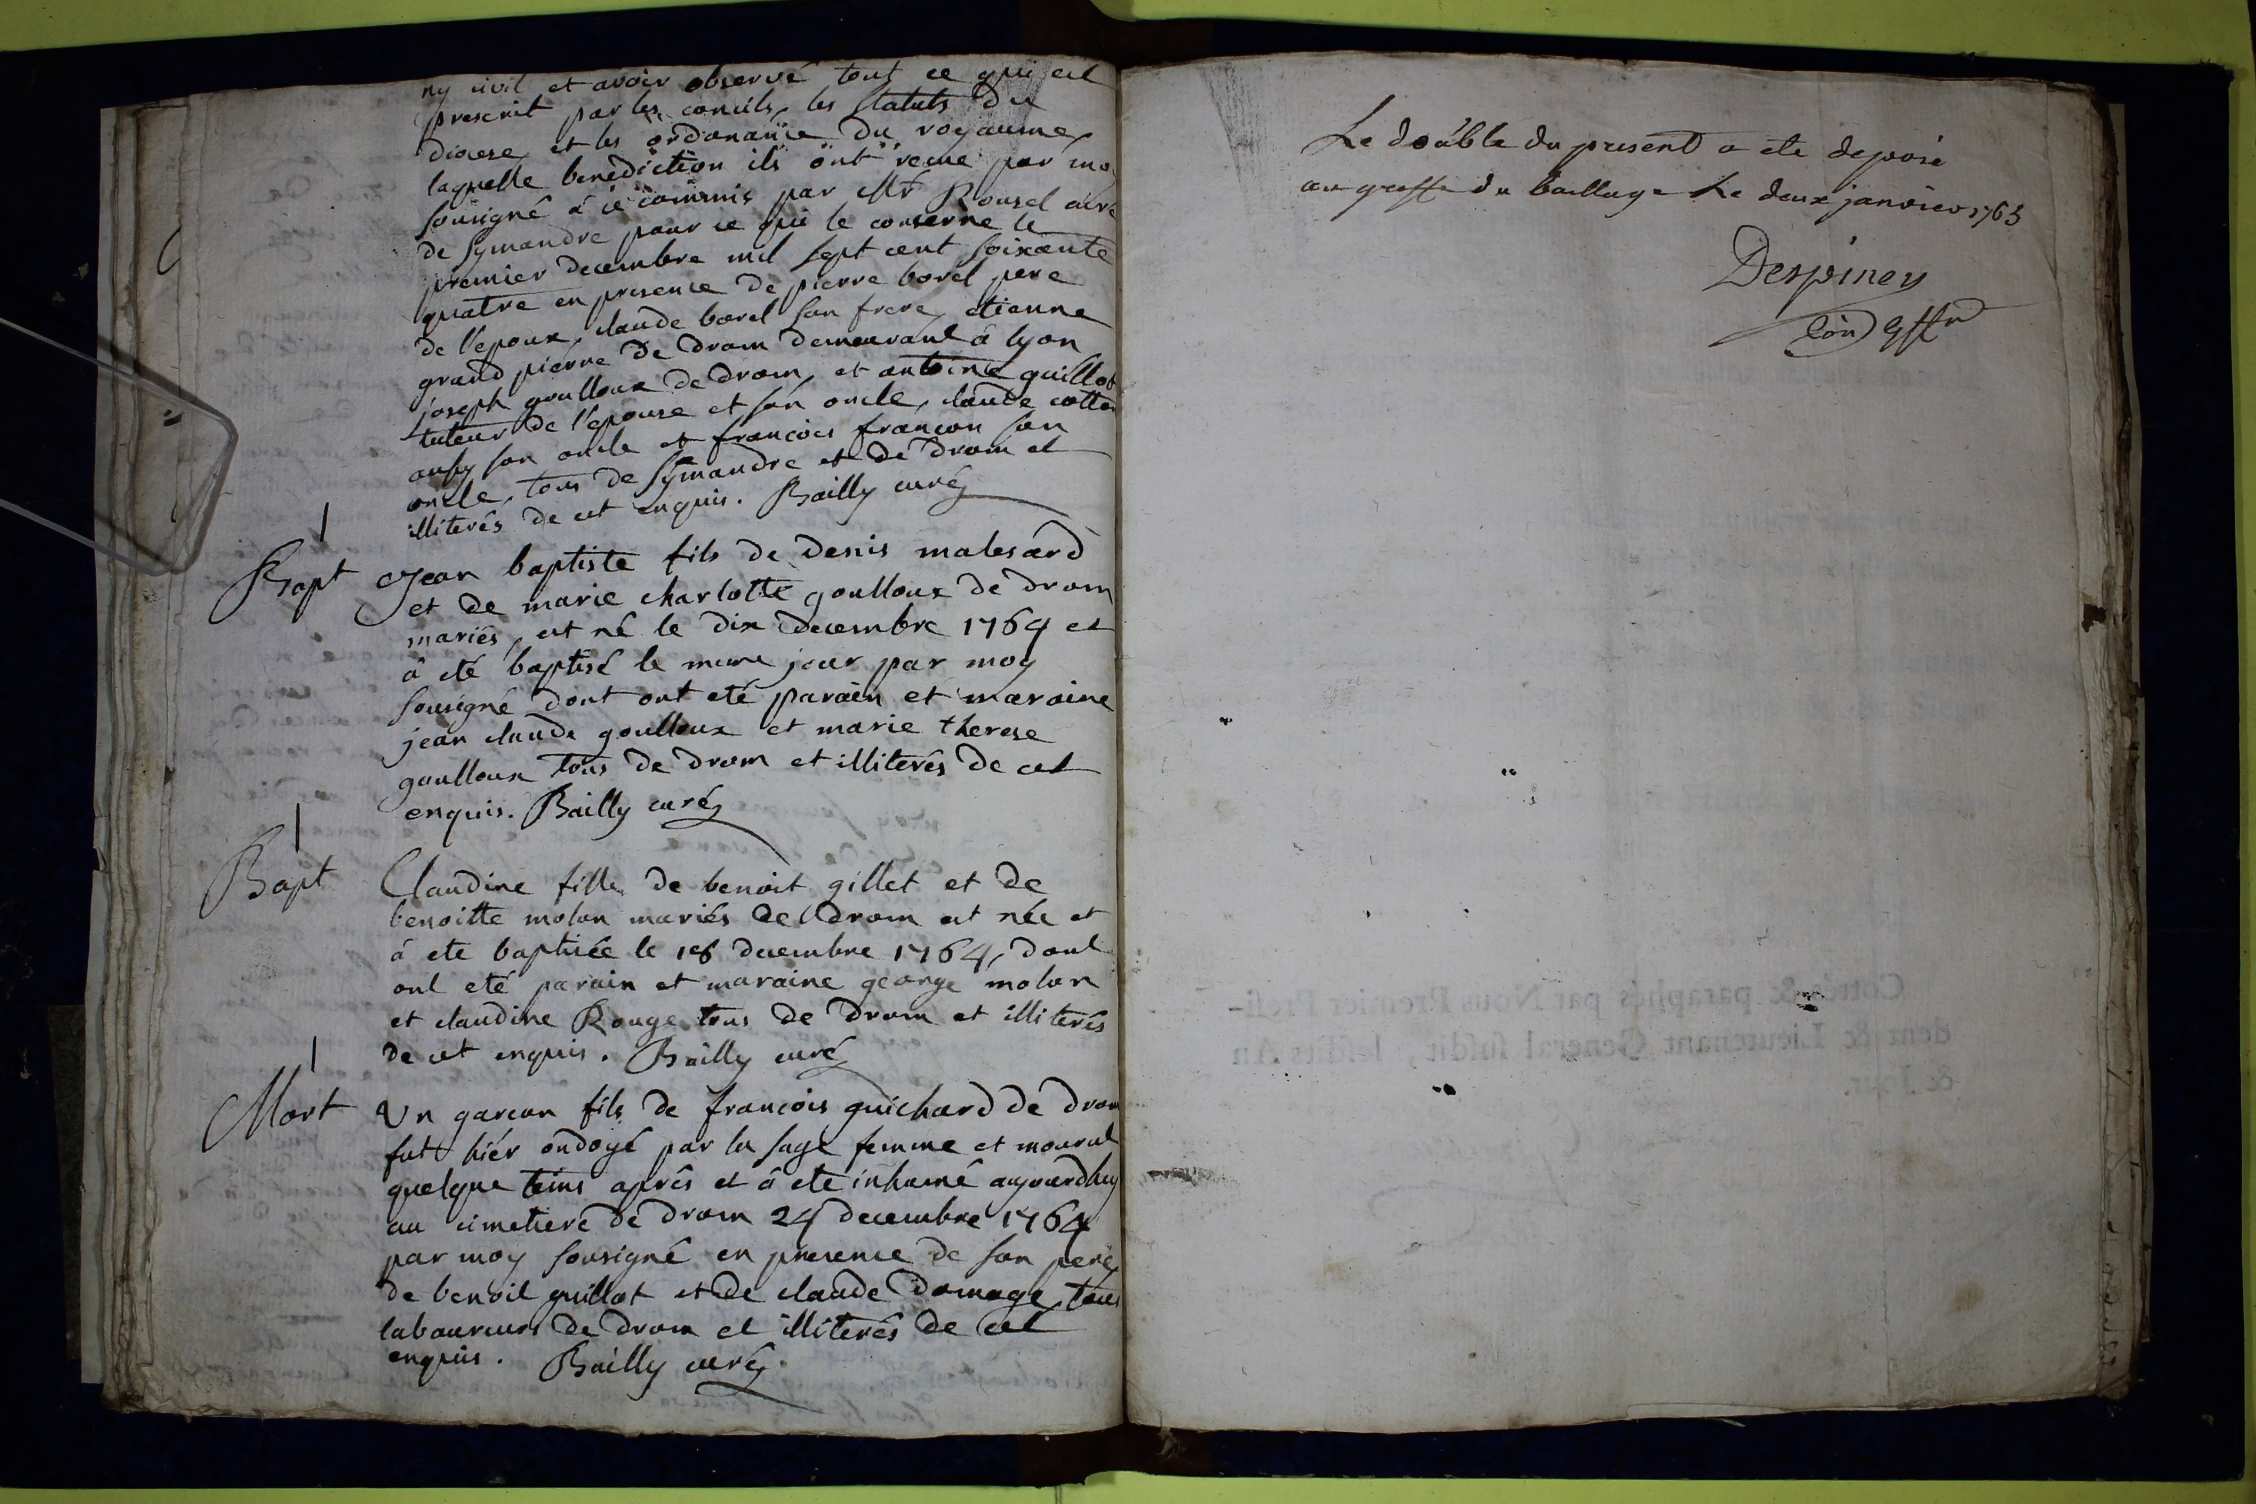 ny civil et avoir observé tout ce qui est
prescrit par les conciles, les statuts du
diocese, et les ordonance du royaume,
laquelle benediction ils ont receue par mo
sousigné à ce commis par Mr Rousel curé
de Symandre pour ce qui le conserne le
premier decembre mil sept cent soixante
quatre en presence de pierre borel pere
de l'epoux, claude borel son frere, etienne
grand pierre de drom demeurant à lyon
joseph goulloux de drom, et antoine guillot
tuteur de l'epouse et son oncle, claude
aussy son oncle et francois francon son
oncle, tous de Symandre et de drom et
illiterés de cet enquis. Bailly curé
Bapt Jean baptiste fils de denis malesard
et de marie charlotte goulloux de drom
mariés, est né le dix decembre 1764 et
à eté baptisé le meme jour par moy
sousigné dont ont eté parain et maraine
jean claude goulloux et marie therese
goulloux tous de drom et illiterés de cet
enquis. Bailly curé
Bapt Claudine fille de benoit gillet et de
benoitte molon mariés de drom est née et
à ete baptisée le 18 decembre 1764, dont
ont eté parain et maraine george molon
et claudine Rouge tous de drom et illiterés
de cet enquis. Bailly curé
Mort Un garcon fils de francois guichard de drom
fut hiér ondoyé par la sage femme et mourut
quelque tems aprês et à ete inhumé aujourdhuy
au cimetiere de drom 24 decembre 1764
par moy sousigné en presence de son pere,
de benoit guillot et de claude domage, tous
laboureurs de drom et illiterés de cet
enquis. Bailly curé
Le double du present a ete deposé
au greffe du baillage Le deux janvier 1765
Despiney
Cottés & paraphés par Nous Premier Presi-
dent & Lieutenant General susdit, lesdits An
& Jour.